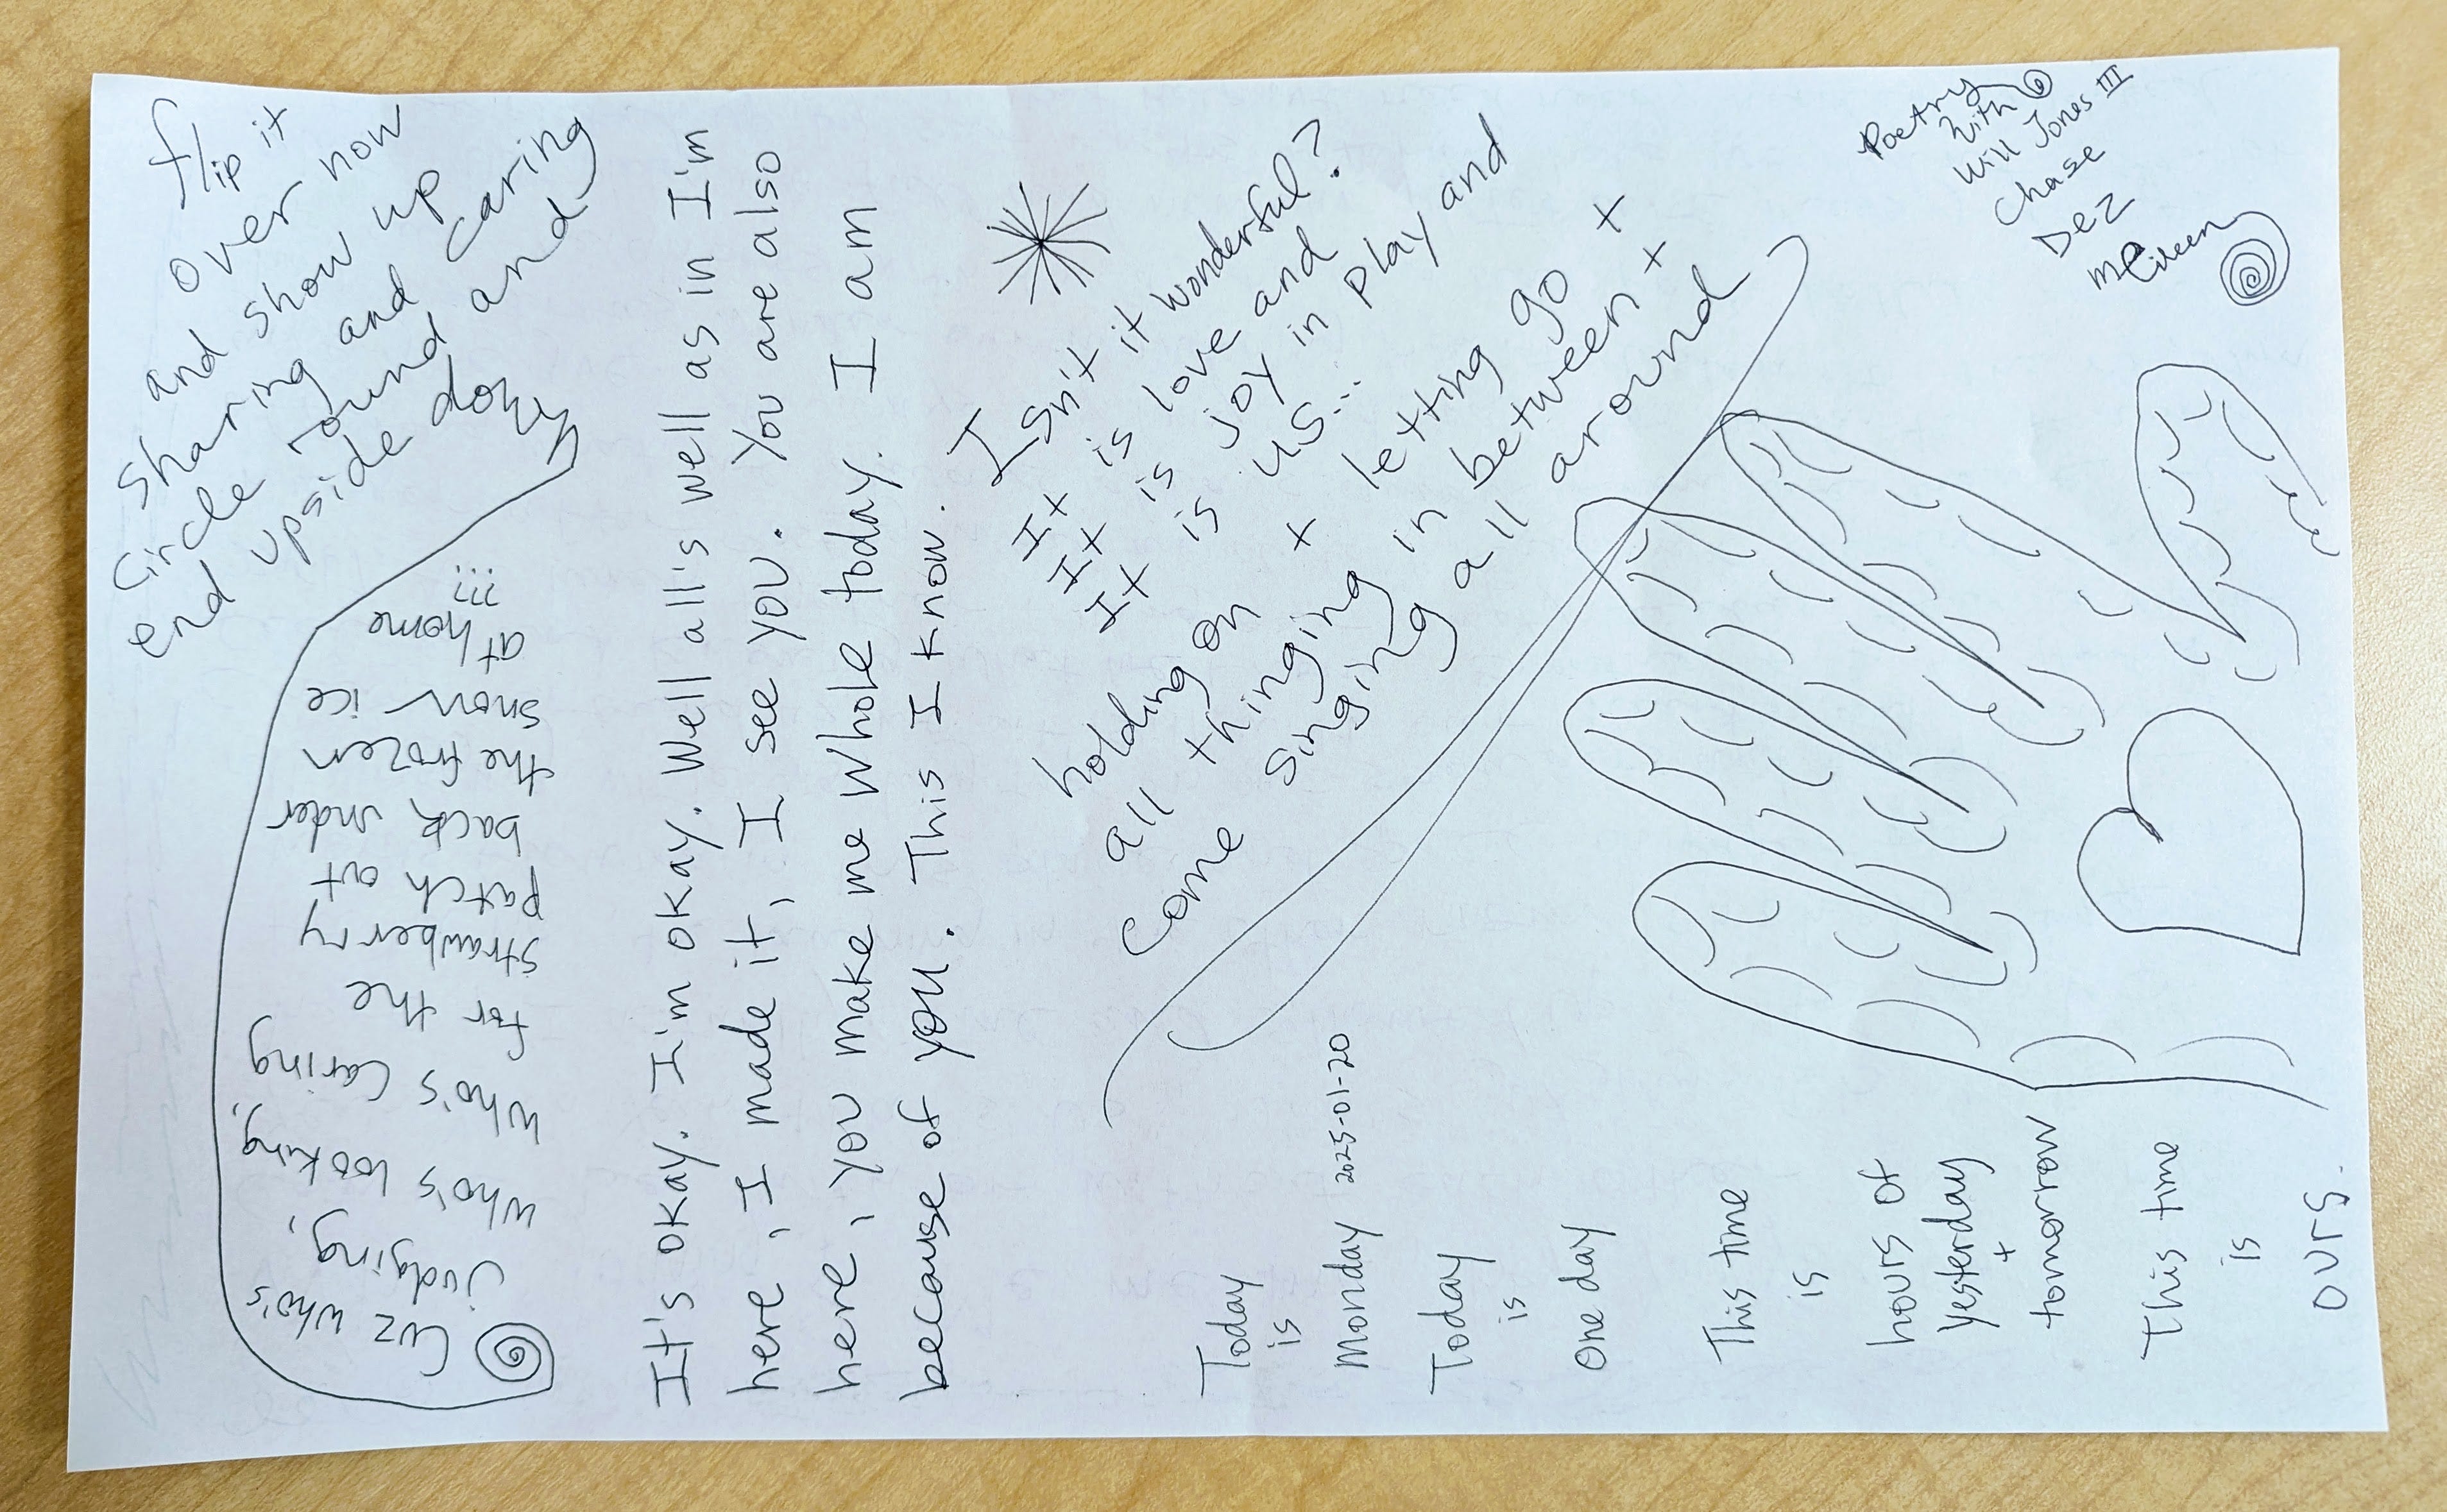 flip it
over now
and show up
sharing and caring
circle round and
end upside down
Cuz who's
judging,
who's looking,
who's caring
for the
strawberry
patch out
back under
the frozen
snow ice
at home
...
It's okay. I'm okay. Well all's well as in I'm
here, I made it, I see you. You are also
here, you make me whole today. I am
because of you. This I know.
Isn't it wonderful?
It is love and
It is joy in play and
It is us...
holding on + letting go +
all thinging in between +
Come singing all around
Today
is
Monday 2025-01-20
Today
is
One day
This time
is
hours of
yesterday
+
tomorrow
This time
is
ours.
Poetry
with
Will Jones III
Chase
Dez
me
Eileen